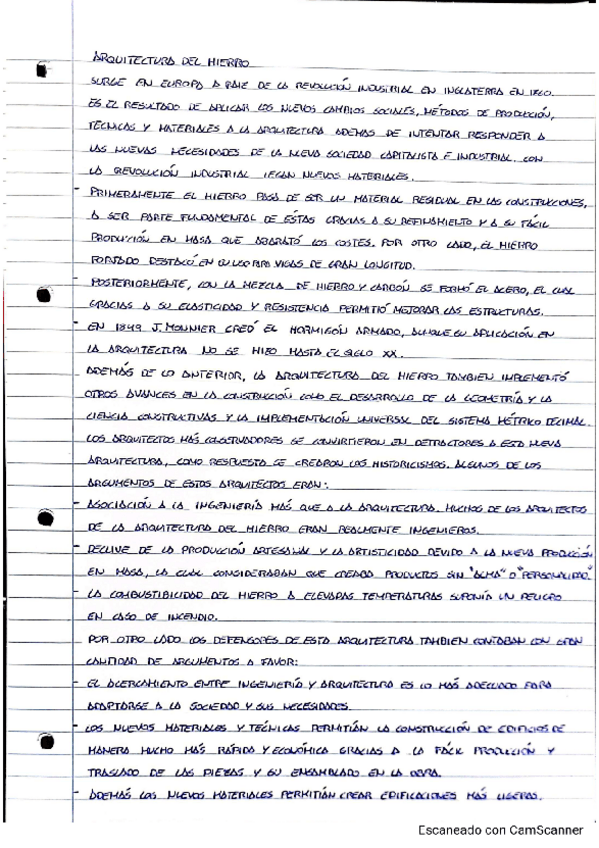 ARQUITECTURA DEL HIERRO
SURGE EN EUROPA A RAIZ DE LA REVOLUCIÓN INDUSTRIAL EN INGLATERRA EN
ES EL RESULTADO DE APLICAR LOS NUEVOS CAMBIOS SOCIALES, MÉTODOS DE PRODUCCIÓN,
TÉCNICAS Y MATERIALES A LA ARQUITECTURA ADEMÁS DE INTENTAR RESPONDER A
LAS NUEVAS NECESIDADES DE LA NUEVA SOCIEDAD CAPITALISTA E INDUSTRIAL. CON
LA REVOLUCIÓN INDUSTRIAL LLEGAN NUEVOS MATERIALES.
- PRIMERAMENTE EL HIERRO PASA DE SER UN MATERIAL RESIDUAL EN LAS CONSTRUCCIONES,
A SER PARTE FUNDAMENTAL DE ÉSTAS GRACIAS A SU REFINAMIENTO Y A SU FÁCIL
PRODUCCIÓN EN MASA QUE ABARATÓ LOS COSTES. POR OTRO LADO, EL HIERRO
FORJADO DESTACÓ EN SU USO PARA VIGAS DE GRAN LONGITUD.
- POSTERIORMENTE, CON LA MEZCLA DE HIERRO Y CARBÓN SE FORMÓ EL ACERO, EL CUAL
GRACIAS A SU ELASTICIDAD Y RESISTENCIA PERMITIÓ MEJORAR LAS ESTRUCTURAS.
- EN 1849 J. MOUNIER CREÓ EL HORMIGÓN ARMADO, AUNQUE SU APLICACIÓN EN
LA ARQUITECTURA NO SE HIZO HASTA EL SIGLO XX.
ADEMÁS DE LO ANTERIOR, LA ARQUITECTURA DEL HIERRO TAMBIEN IMPLEMENTÓ
OTROS AVANCES EN LA CONSTRUCCIÓN COMO EL DESARROLLO DE LA GEOMETRÍA Y LA
CIENCIA CONSTRUCTIVAS Y LA IMPLEMENTACIÓN UNIVERSAL DEL SISTEMA MÉTRICO DECIMAL.
LOS ARQUITECTOS MÁS CONSERVADORES SE CONVIRTIERON EN DETRACTORES A ESTA NUEVA
ARQUITECTURA, COMO RESPUESTA SE CREARON LOS HISTORICISMOS. ALGUNOS DE LOS
ARGUMENTOS DE ESTOS ARQUITECTOS ERAN:
- ASOCIACIÓN A LA INGENIERÍA MÁS QUE A LA ARQUITECTURA. MUCHOS DE LOS ARQUITECTOS
DE LA ARQUITECTURA DEL HIERRO ERAN REALMENTE INGENIEROS.
- DECLIVE DE LA PRODUCCIÓN ARTESANAL Y LA ARTISTICIDAD DEVIDO A LA NUEVA PRODUCCIÓN
EN MASA, LA CUAL CONSIDERABAN QUE CREABA PRODUCTOS SIN "ALMA" O "PERSONALIDAD".
- LA COMBUSTIBILIDAD DEL HIERRO A ELEVADAS TEMPERATURAS SUPONÍA UN PELIGRO
EN CASO DE INCENDIO.
POR OTRO LADO LOS DEFENSORES DE ESTA ARQUITECTURA TAMBIEN CONTABAN CON GRAN
CANTIDAD DE ARGUMENTOS A FAVOR:
- EL ACERCAMIENTO ENTRE INGENIERÍA Y ARQUITECTURA ES LO MÁS ADECUADO PARA
ADAPTARSE A LA SOCIEDAD Y SUS NECESIDADES.
- LOS NUEVOS MATERIALES Y TÉCNICAS PERMITÍAN LA CONSTRUCCIÓN DE EDIFICIOS DE
MANERA MUCHO MÁS RÁPIDA Y ECONÓMICA GRACIAS A LA FÁCIL PRODUCCIÓN Y
TRASLADO DE LAS PIEZAS Y SU ENSAMBLADO EN LA OBRA.
- ADEMÁS LOS NUEVOS MATERIALES PERMITÍAN CREAR EDIFICACIONES MÁS LIGERAS.
Escaneado con CamScanner